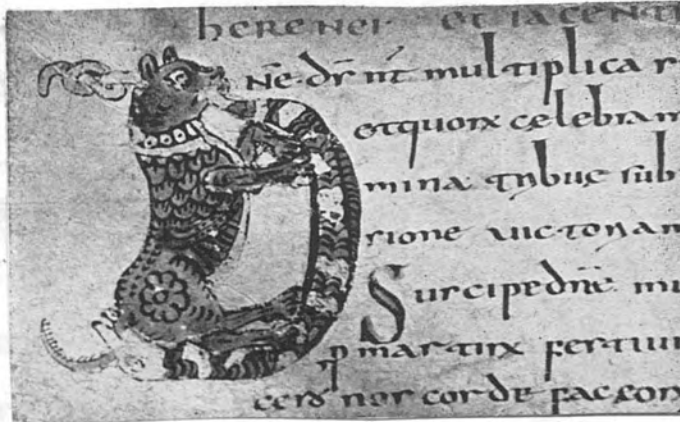 herenei et iacenti
ñe d̄s n̄t multiplica s
et quorꝝ celebram
mina tribue sub
sione uictoriam
Suscipe dn̄e mu
p martirꝝ festiui
nos corde fac